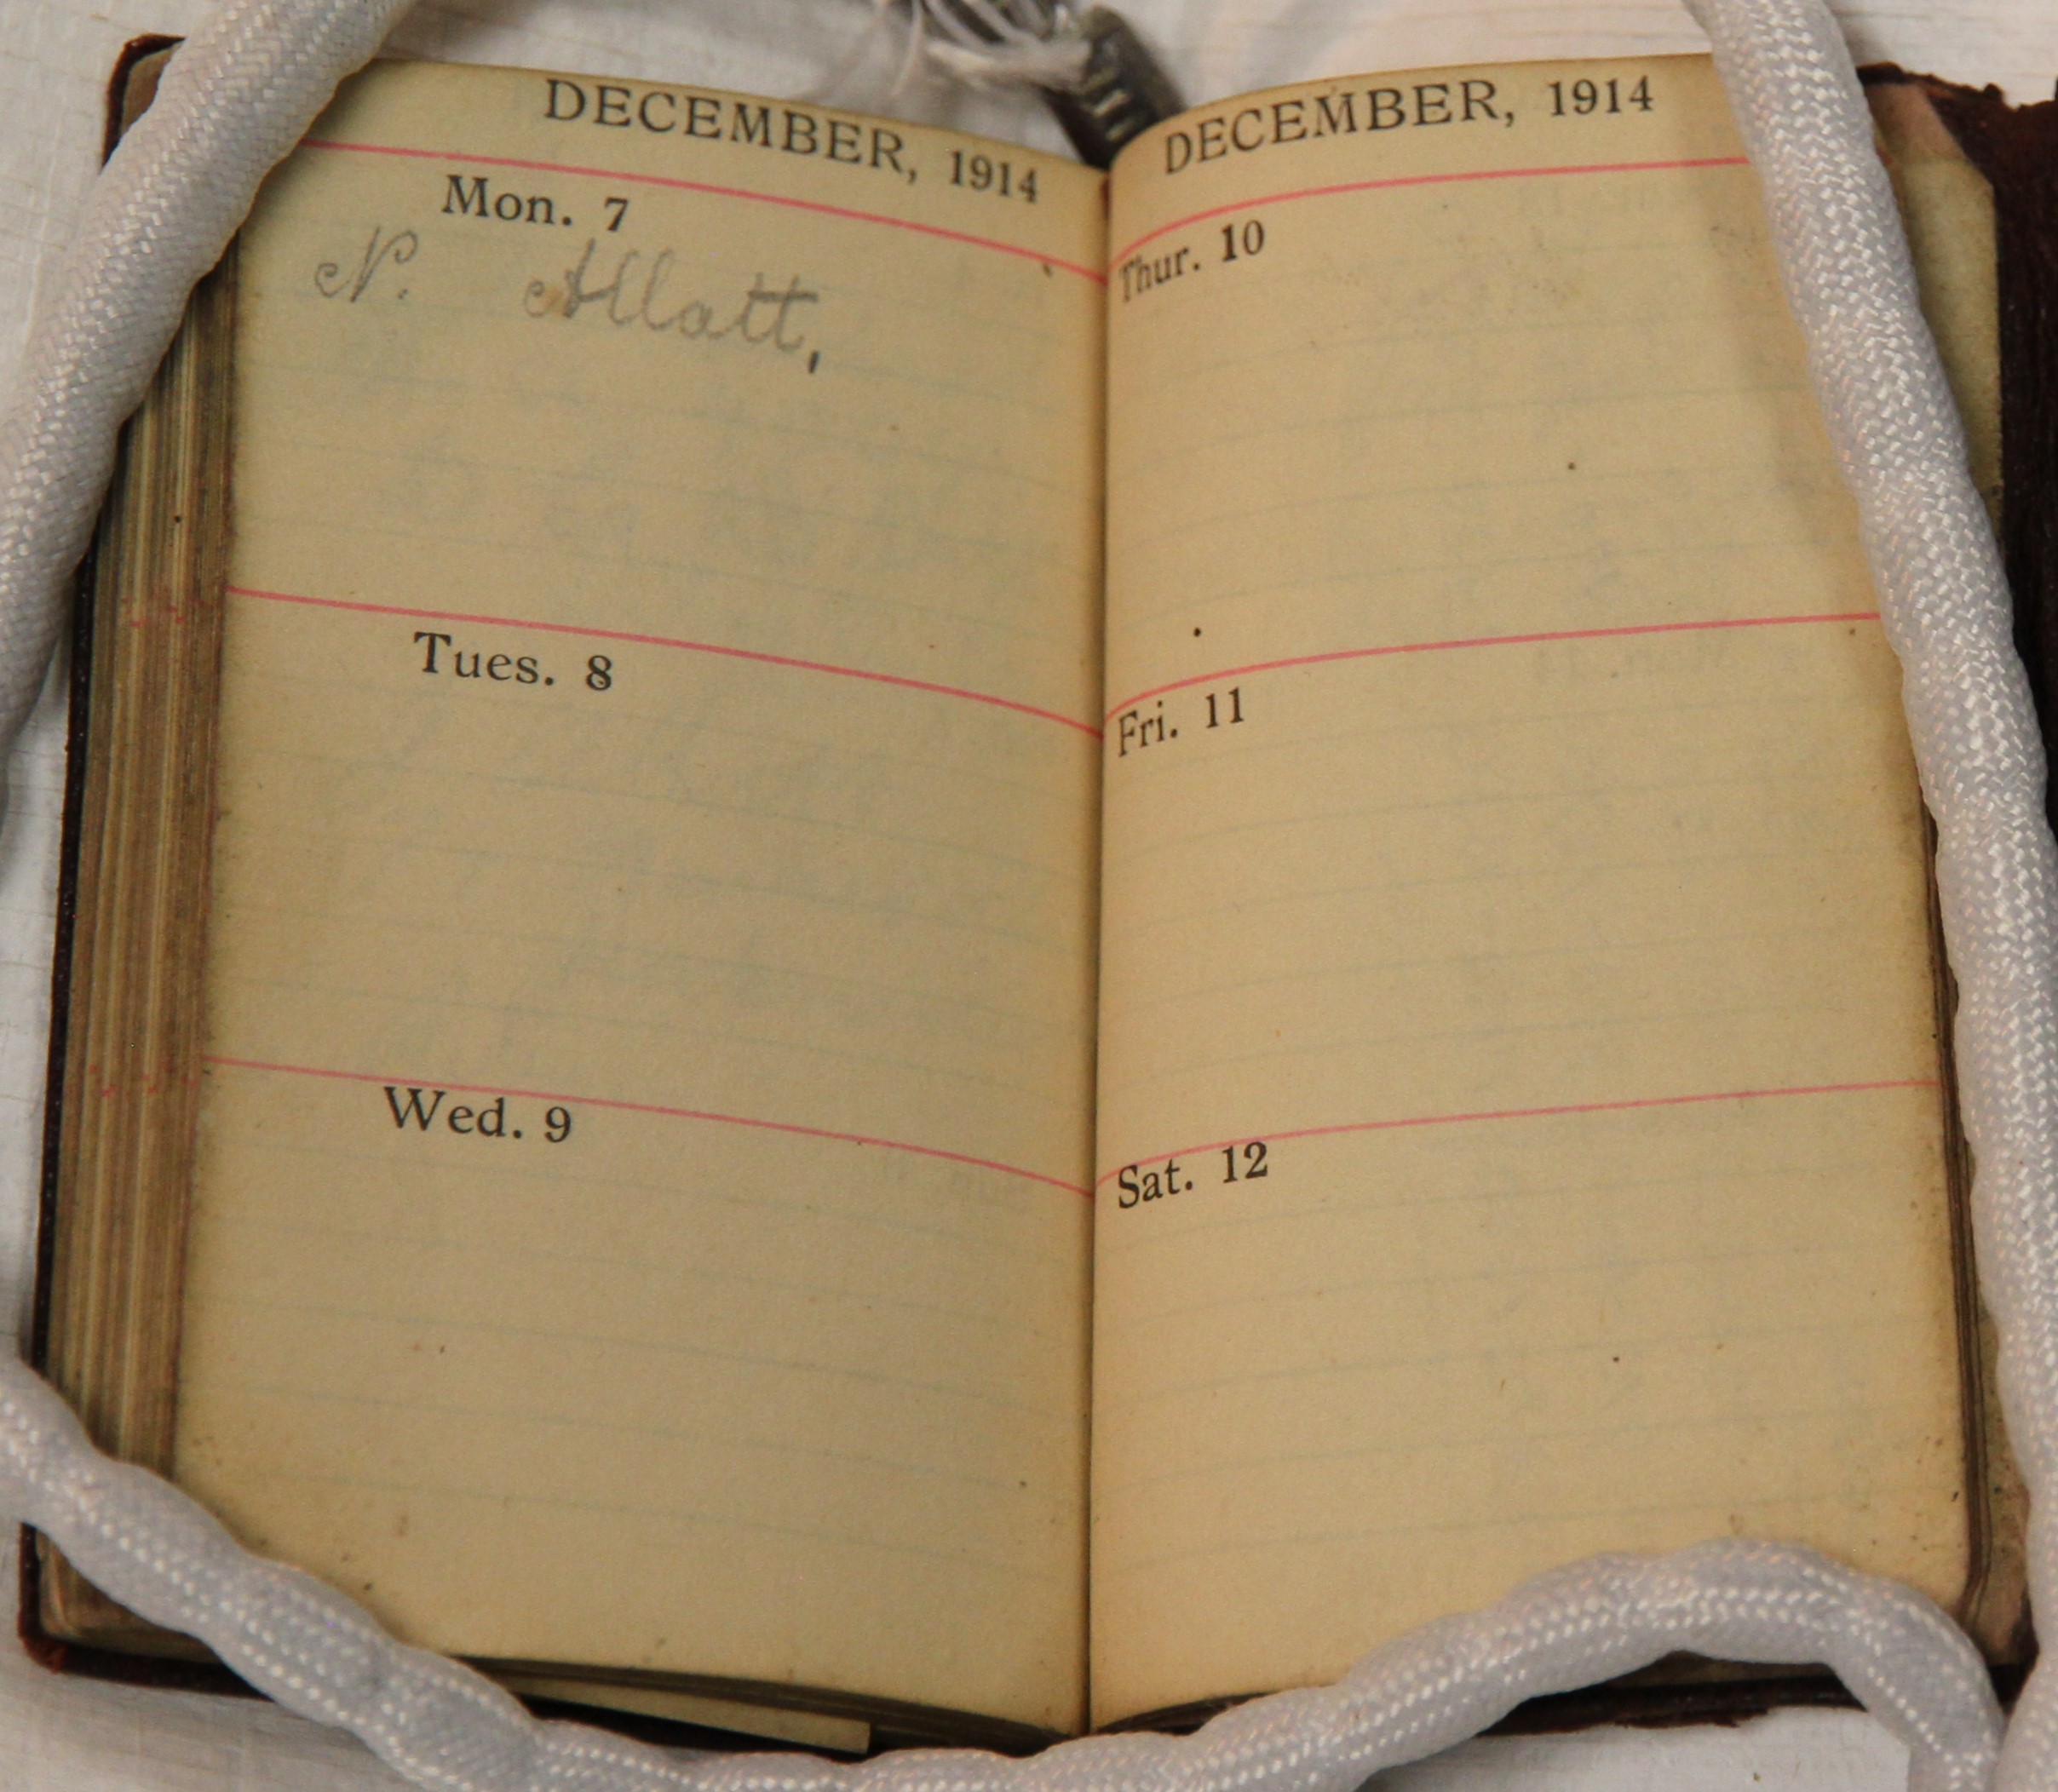 DECEMBER, 1914
Mon. 7
N. Allatt,
Tues. 8
Wed. 9
DECEMBER, 1914
Thur. 10
Fri. 11
Sat. 12